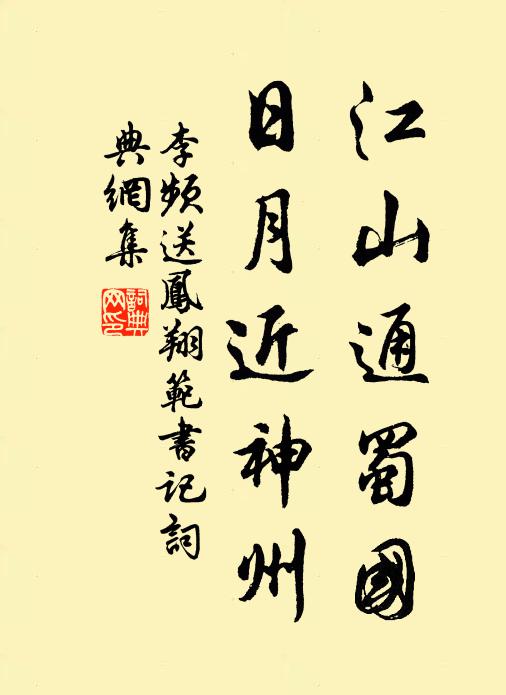 江山通蜀國
日月近神州
李頻送鳳翔範書記詞
典網集
詞典
网印